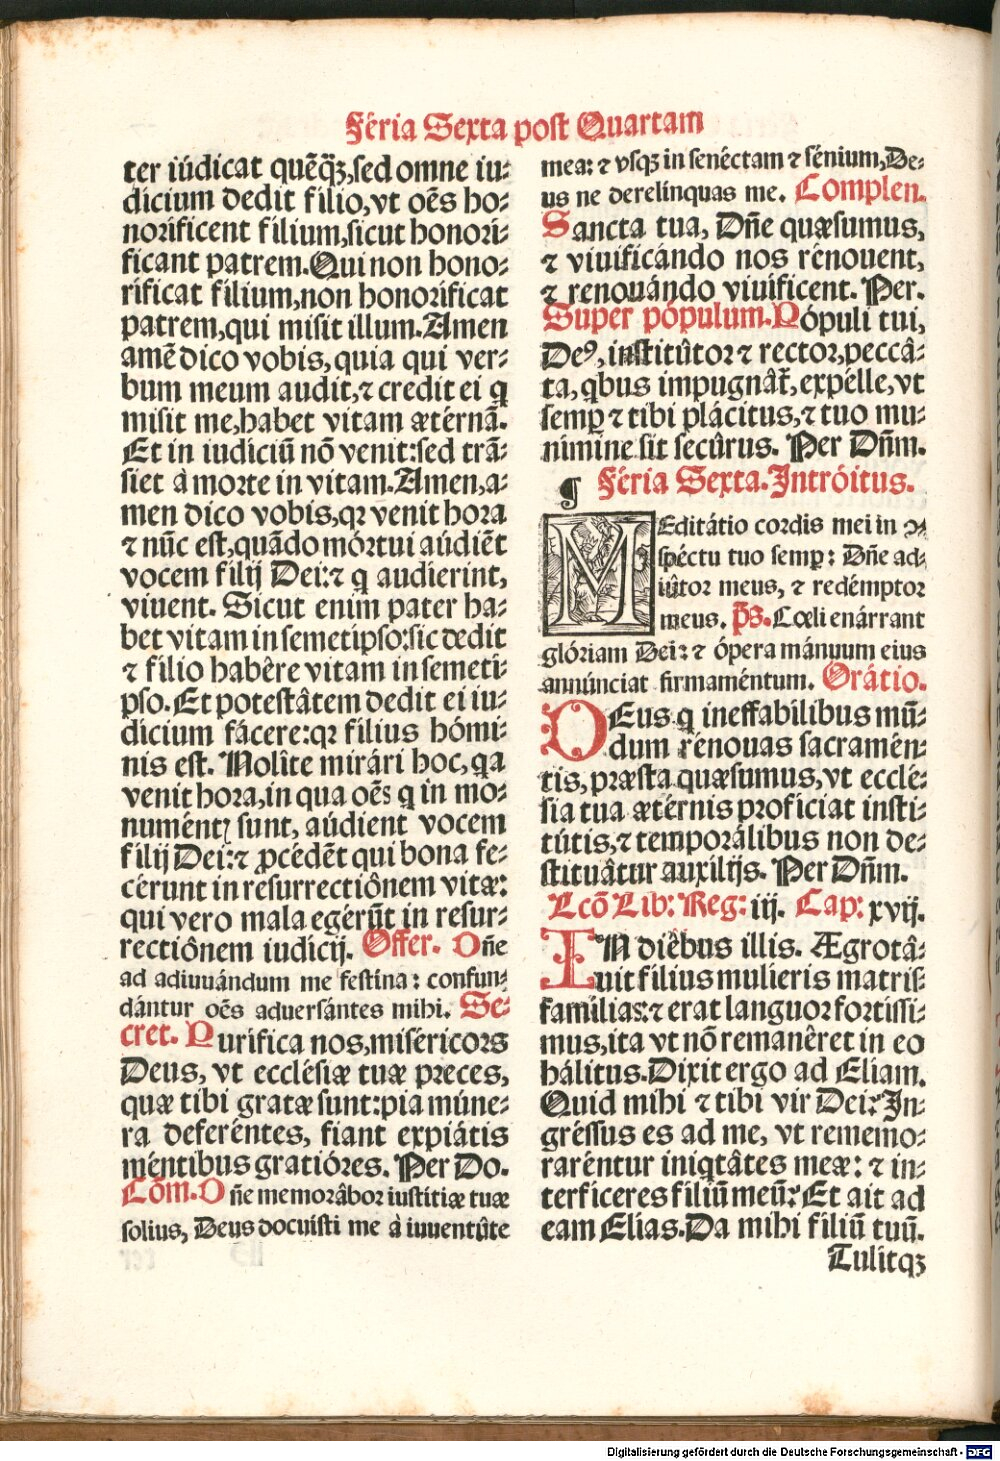 Féria Sexta post Quartam
ter iúdicat quēq̄ꝫ, sed omne iu-
dicium dedit filio, vt oēs ho-
norificent filium, sicut honori-
ficant patrem. Qui non hono-
rificat filium, non honorificat
patrem, qui misit illum. Amen
amē dico vobis, quia qui ver-
bum meum audit, ⁊ credit ei q̄
misit me, habet vitam ætérnā.
Et in iudiciū nō venit: sed trā-
siet à morte in vitam. Amen, a-
men dico vobis, qꝛ venit hora
⁊ nūc est, quādo mórtui aúdiēt
vocem filij Dei: ⁊ q̄ audierint,
viuent. Sicut enim pater ha-
bet vitam in semetipso: sic dedit
⁊ filio habêre vitam in semeti-
pso. Et potestâtem dedit ei iu-
dicium fácere: qꝛ filius hómi-
nis est. Nolîte mirári hoc, q̄a
venit hora, in qua oēs q̄ in mo-
numéntꝭ sunt, aúdient vocem
filij Dei: ⁊ ꝓcédēt qui bona fe-
cérunt in resurrectiônem vitæ:
qui vero mala egérūt in resur-
rectiônem iudicij. Offer. Dñe
ad adiuuándum me festina: confun-
dántur oēs aduersántes mihi. Se-
cret. Purifica nos, miséricors
Deus, vt ecclésiæ tuæ preces,
quæ tibi gratæ sunt: pia múne-
ra deferéntes, fiant expiátis
méntibus gratióres. Per Do.
Cōm. Dñe memorâbor iustitiæ tuæ
solius, Deus docuisti me à iuuentûte
mea: ⁊ vsqꝫ in senéctam ⁊ sénium, De-
us ne derelinquas me. Complen.
Sancta tua, Dñe quæsumus,
⁊ viuificándo nos rénouent,
⁊ renouándo viuificent. Per.
Super pópulum. Pópuli tui,
De⁹, institûtor ⁊ rector, peccâ-
ta, q̄bus impugnāt᷑, expélle, vt
semꝑ ⁊ tibi plácitus, ⁊ tuo mu-
nimine sit secûrus. Per Dñm.
¶ Féria Sexta. Intróitus.
MEditátio cordis mei in ꝯ-
spéctu tuo semꝑ: Dñe ad-
iûtor meus, ⁊ redémptor
meus. p̄s. Cœli enárrant
glóriam Dei: ⁊ ópera mánuum eius
annúnciat firmaméntum. Orátio.
DEus q̄ ineffabilibus mū-
dum rénouas sacramén-
tis, præsta quæsumus, vt ecclé-
sia tua ætérnis proficiat insti-
tútis, ⁊ temporâlibus non de-
stituâtur auxilijs. Per Dñm.
Lcō Lib: Reg: iij. Cap: xvij.
IN diêbus illis. Ægrotâ-
uit filius mulieris matris-
familias: ⁊ erat languor fortissi-
mus, ita vt nō remanêret in eo
hálitus. Dixit ergo ad Eliam.
Quid mihi ⁊ tibi vir Dei? In-
gréssus es ad me, vt rememo-
raréntur iniq̄tâtes meæ: ⁊ in-
terficeres filiū meū? Et ait ad
eam Elias. Da mihi filiū tuū.
Tulitqꝫ
Digitalisierung gefördert durch die Deutsche Forschungsgemeinschaft - DFG